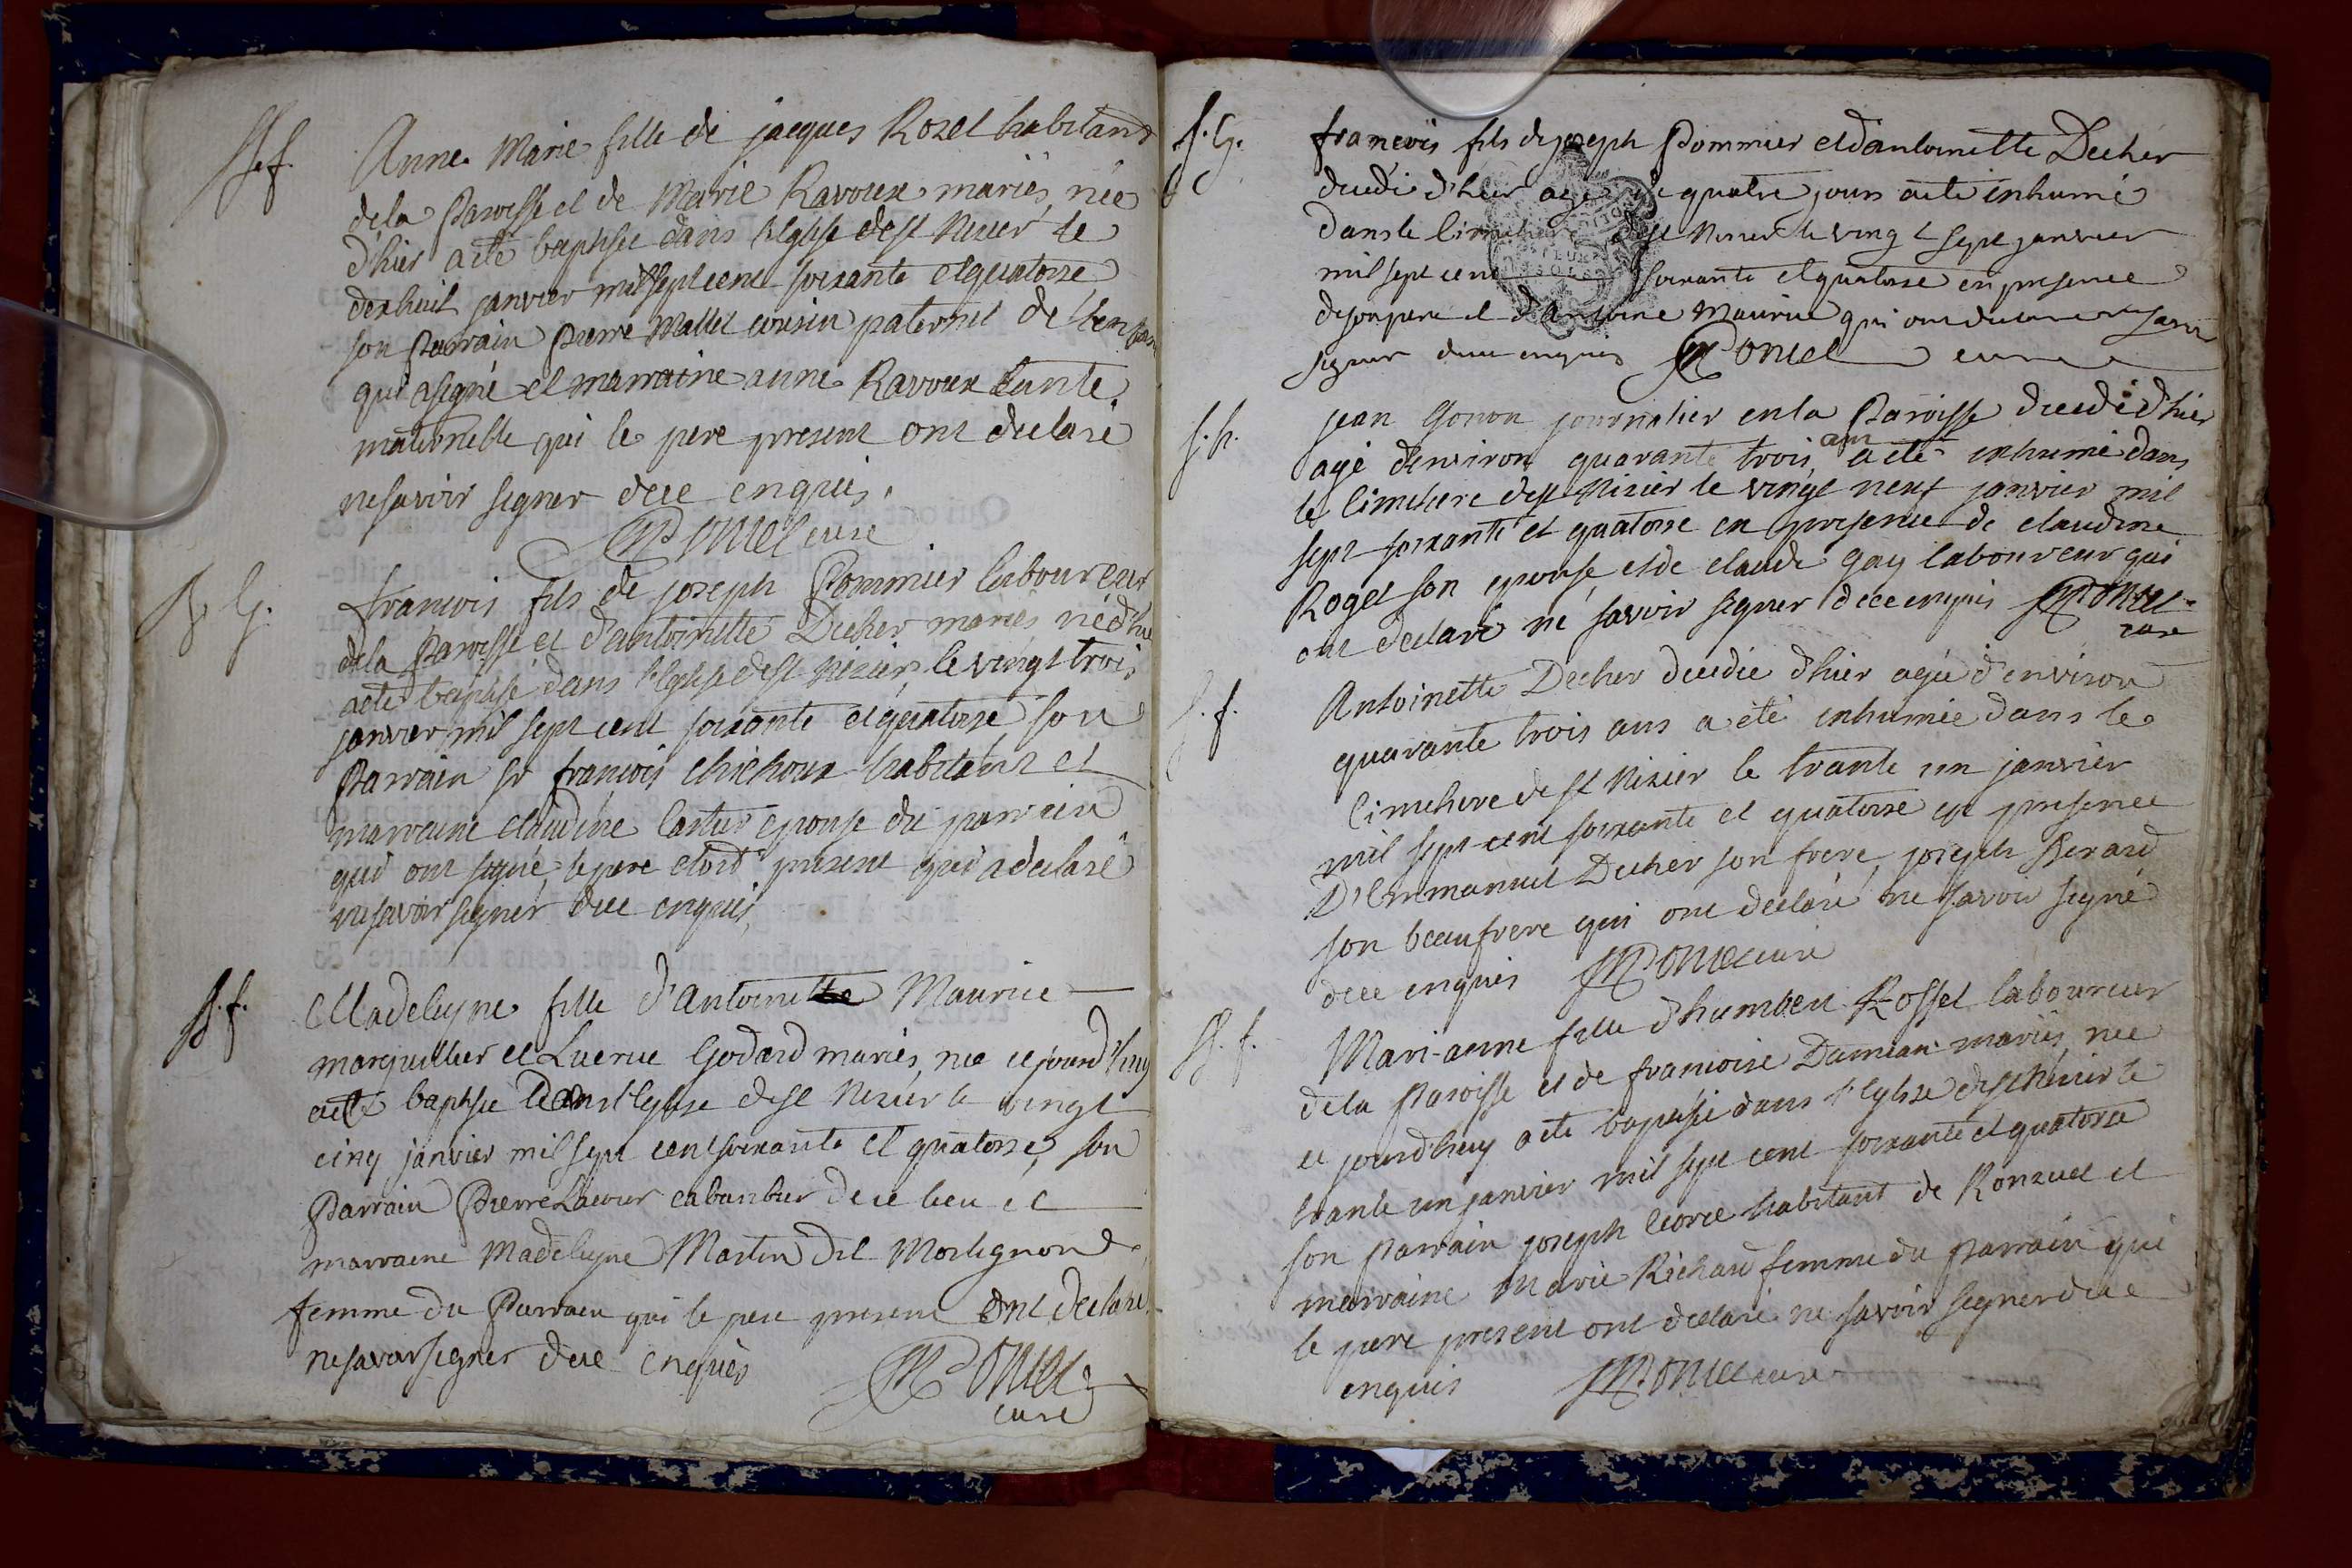 B. f.
Anne Marie fille de jacques Rozet habitant
dela Paroisse et de Marie Ravoux mariés, née
d'hier a eté baptisée dans l'Eglise de st Nizier le
dexhuit janvier mil sept cent soixante et quatorse
son Parrain Pierre Mallet cousin paternel de l'enfant
qui a signé et marraine anne Ravoux tante
maternelle qui le pere present ont declaré
ne savoir signer de ce enquis.
curé
B. G.
francois fils de joseph Pommier laboureur
dela Paroisse et d'antoinette Decher mariés né d'hier
a eté baptisé dans l'Eglise de st Nizier le vingt trois
janvier mil sept cent soixante et quatorse son
Parrain sr francois chichoux habitant et
marraine claudine epouse du parrain
qui ont signé, le pere present qui a declaré
ne savoir signer de ce enquis,
B. f.
Madeleyne fille d'antoine Maurice
marguillier et Lucrece Godard mariés, née ce jourd'huy
a eté baptisée dans l'Eglise de st Nizier le vingt
cinq janvier mil sept cent soixante et quatorse, son
Parrain Pierre Lacour cabaretier de ce lieu et
marraine Madeleyne Martin dit Morlignon
femme du Parrain qui le pere present ont declaré
ne savoir signer de ce enquis
curé
S. G.
francois fils de joseph Pommier et d'antoinette Decher
decedé d'hier agé de quatre jours a eté inhumé
dans le Cimetiere de st Nizier le vingt sept janvier
mil sept cent soixante et quatorse en presence
de son pere et d'Antoine Maurice qui ont declaré ne savoir
signer de ce enquis curé
S. h.
jean Gonon journalier en la Paroisse decedé d'hier
agé d'environ quarante trois ans a eté inhumé dans
le Cimetiere de st Nizier le vingt neuf janvier mil
sept soixante et quatorse en presence de claudine
Roget son epouse, et de claude Gay laboureur qui
ont declaré ne savoir signer de ce enquis
curé
S. f.
Antoinette Decher decedée d'hier agée d'environ
quarante trois ans a été inhumée dans le
Cimetiere de st Nizier le trante un janvier
mil sept cent soixante et quatorse en presence
D'Emmanuel Decher son frere, joseph Berard
son beaufrere qui ont declaré ne savoir signé
de ce enquis curé
B. f.
Mari-anne fille d'humbert Rosset laboureur
dela Paroisse et de francoise Damian mariés, née
ce jourd'huy a eté baptisée dans l'Eglise de st Nizier le
trante un janvier mil sept cent soixante et quatorse
son Parrain joseph habitant de Ronzuel et
marraine Marie Richard femme du Parrain qui
le pere present ont declaré ne savoir signer de ce
enquis curé